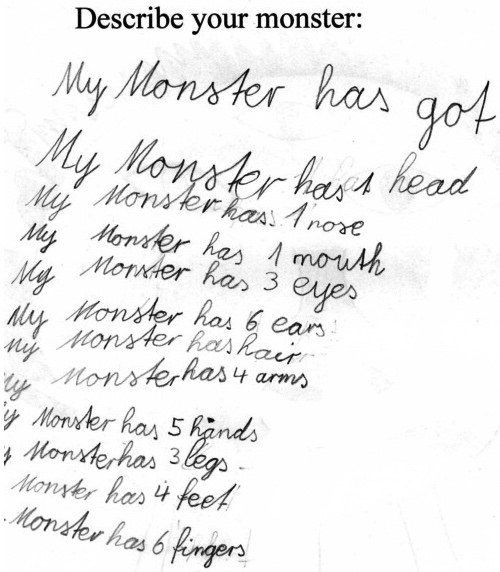 Describe your monster:
My Monster has got
My Monster has 1 head
My Monster has 1 nose
My Monster has 1 mouth
My Monster has 3 eyes
My Monster has 6 ears
My Monster has hair
My Monster has 4 arms
y Monster has 5 hands
y Monster has 3 legs
Monster has 4 feet
Monster has 6 fingers